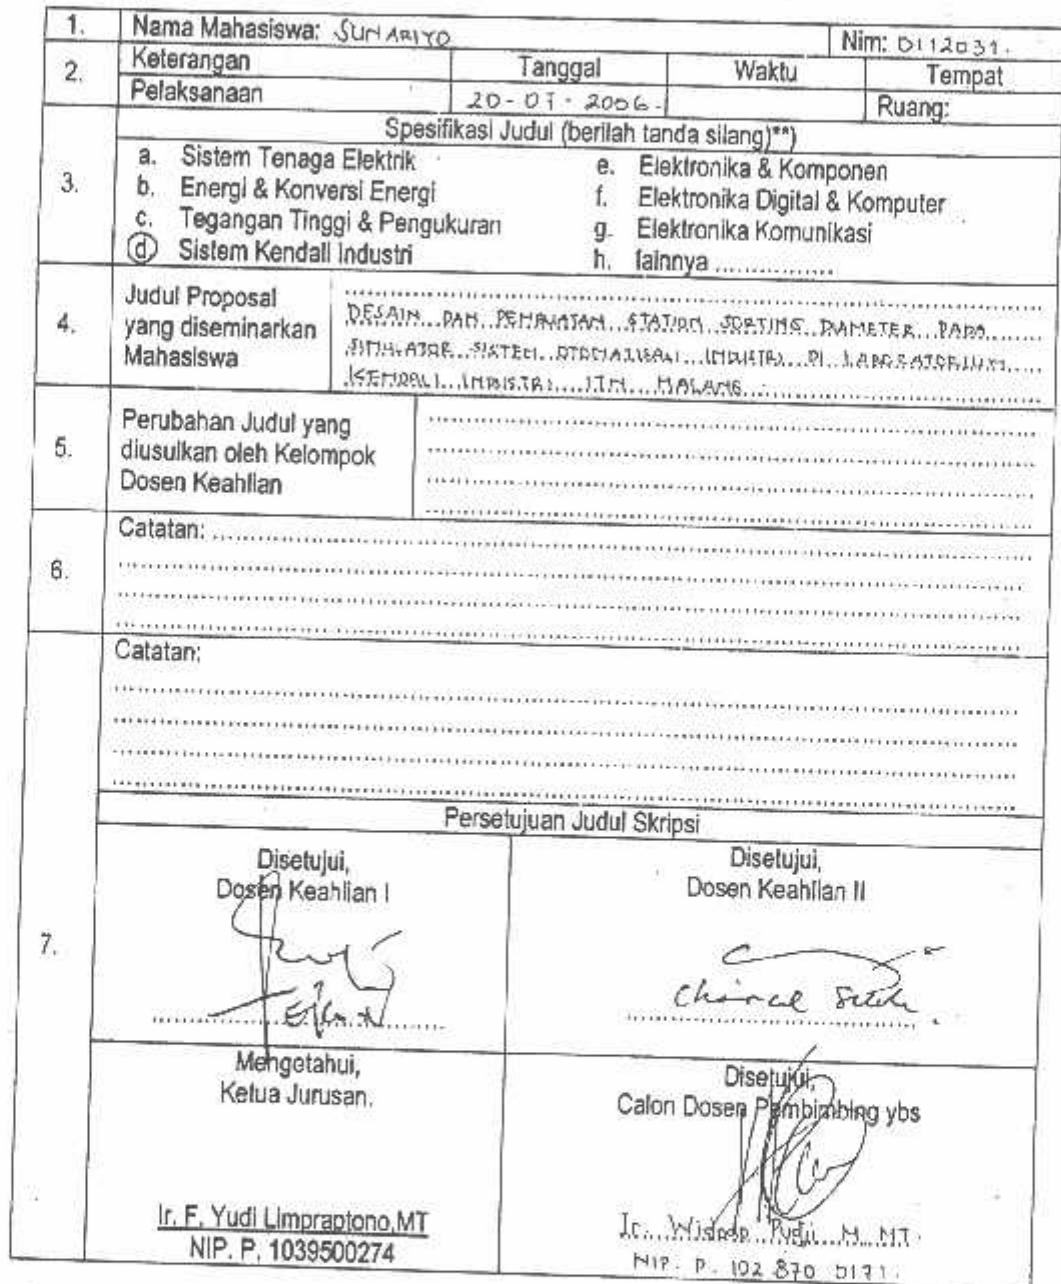 1. Nama Mahasiswa: SUNARIYO Nim: 0112031.
2. Keterangan Pelaksanaan Tanggal Waktu Tempat
20-07-2006- Ruang:
3. Spesifikasi Judul (berilah tanda silang)**)
a. Sistem Tenaga Elektrik
b. Energi & Konversi Energi
c. Tegangan Tinggi & Pengukuran
d Sistem Kendali Industri
e. Elektronika & Komponen
f. Elektronika Digital & Komputer
g. Elektronika Komunikasi
h. lainnya ...............
4. Judul Proposal
yang diseminarkan
Mahasiswa
DESAIN DAN PEMBUATAN STATION SORTING DIAMETER PADA
SIMULATOR SISTEM OTOMATISASI INDUSTRI DI LABORATORIUM
KENDALI INDUSTRI ITN MALANG
5. Perubahan Judul yang
diusulkan oleh Kelompok
Dosen Keahlian
6. Catatan:
7. Catatan:
Persetujuan Judul Skripsi
Disetujui,
Dosen Keahlian I
Disetujui,
Dosen Keahlian II
Mengetahui,
Ketua Jurusan.
Ir. F. Yudi Limpraptono,MT
NIP. P. 1039500274
Disetujui,
Calon Dosen Pembimbing ybs
Ir. Widodo Pudji M MT
NIP. P. 102 870 0171.